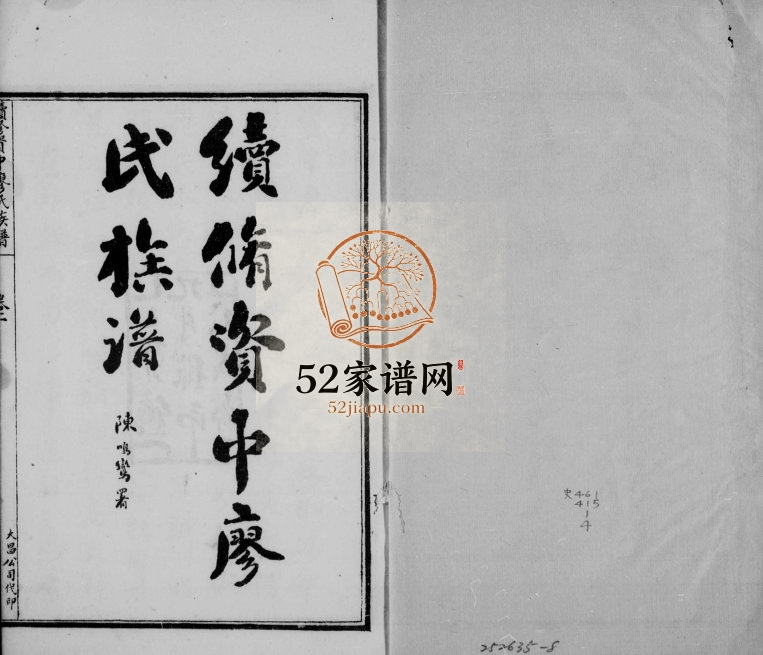 續脩資中廖
氏族譜
陳鳴鸞署
續修資中廖氏族譜
卷二
大昌公司代印
52家谱网
52jiapu.com
史461
415
1
4
252635-8